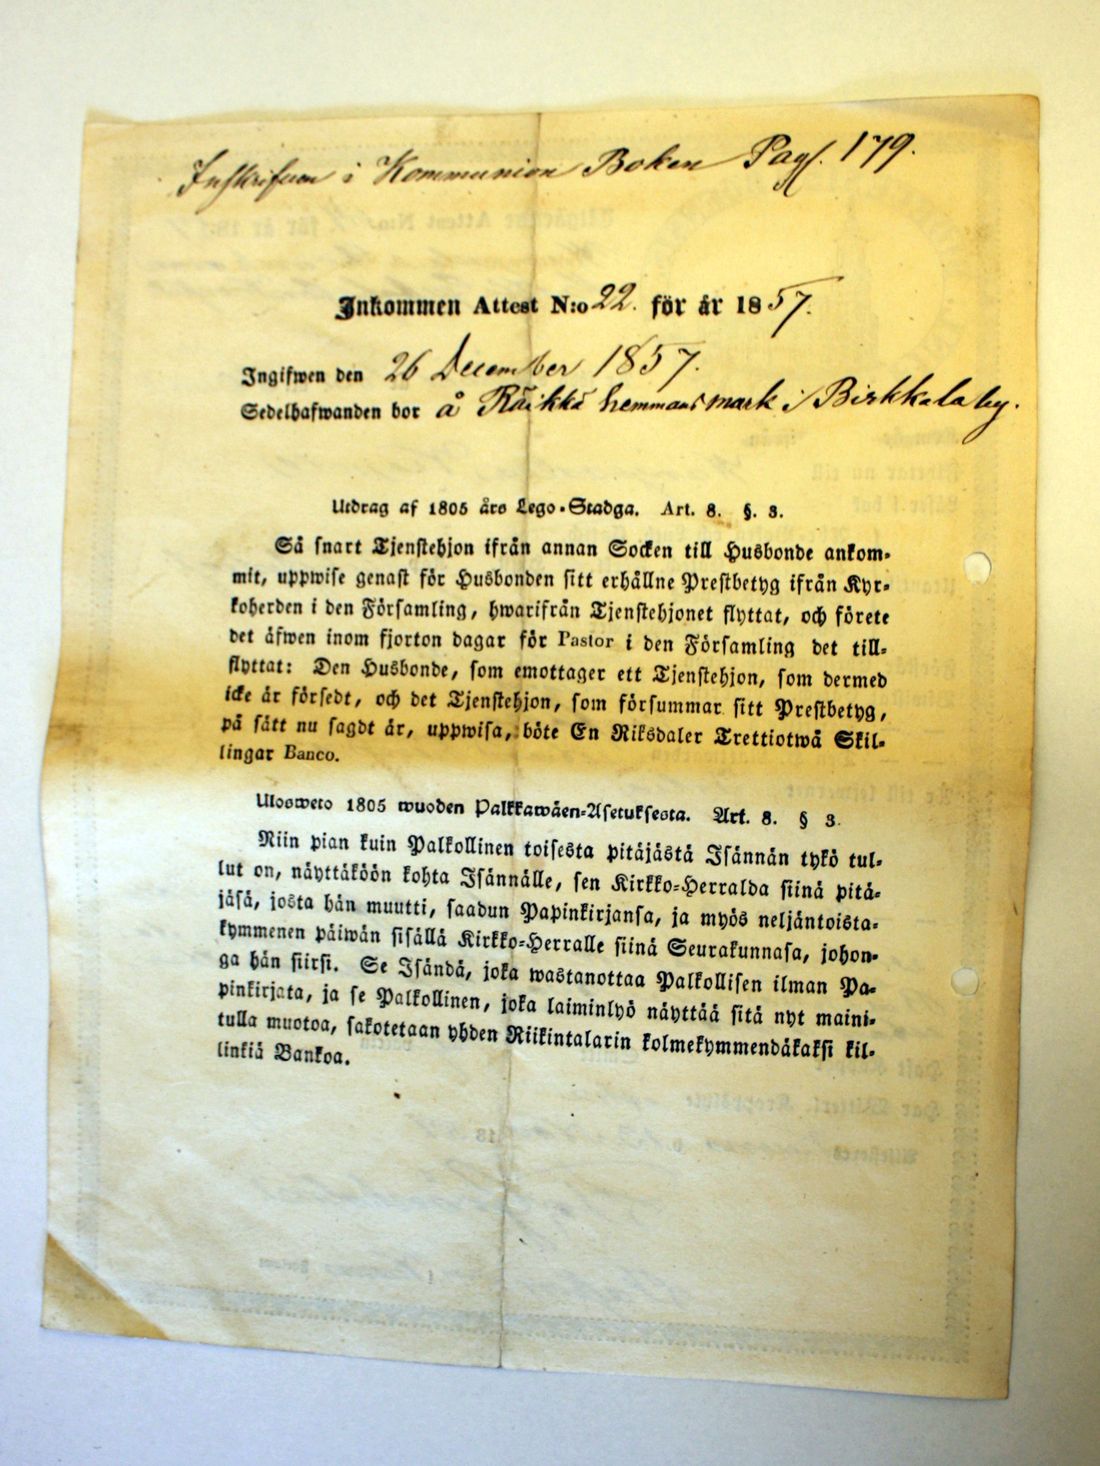 Inskrifven i Kommunion Boken Pag. 179.
Inkommen Attest N:o 22. för år 1857.
Ingifwen den 26 December 1857.
Sedelhafwanden bor å Räikkä hemmansmark i Birkkala by.
Utdrag af 1805 års Lego-Stadga. Art. 8. §. 3.
Så snart Tjenstehjon ifrån annan Socken till Husbonde ankom-
mit, uppwise genast för Husbonden sitt erhållne Prestbetyg ifrån Kyr-
koherden i den Församling, hwarifrån Tjenstehjonet flyttat, och förete
det äfwen inom fjorton dagar för Pastor i den Församling det till-
flyttat: Den Husbonde, som emottager ett Tjenstehjon, som dermed
icke är försedt, och det Tjenstehjon, som försummar sitt Prestbetyg,
på sätt nu sagdt är, uppwisa, böte En Riksdaler Trettiotwå Skil-
lingar Banco.
Ulosweto 1805 wuoden Palkkawäen-Asetuksesta. Art. 8. § 3.
Niin pian kuin Palkollinen toisesta pitäjästä Isännän tykö tul-
lut on, näyttäköön kohta Isännälle, sen Kirkko-Herralda siinä pitä-
jäsä, josta hän muutti, saadun Papinkirjansa, ja myös neljäntoista-
kymmenen päiwän sisällä Kirkko-Herralle siinä Seurakunnasa, johon-
ga hän siirsi. Se Isändä, joka wastanottaa Palkollisen ilman Pa-
pinkirjata, ja se Palkollinen, joka laiminlyö näyttää sitä nyt maini-
tulla muotoa, sakotetaan yhden Riikintalarin kolmekymmendäkaksi kil-
linkiä Bankoa.